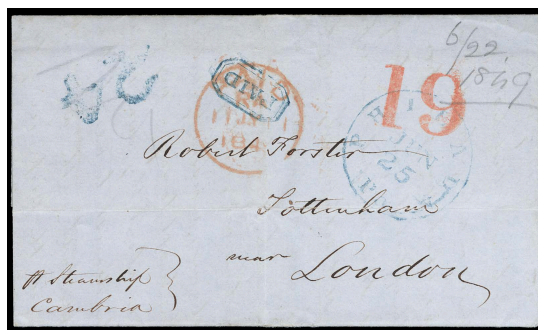 6/22
1849
24
PAID
19
JUN
25
Robert Forster
Tottenham
near
London
pr Steamship
Cambria